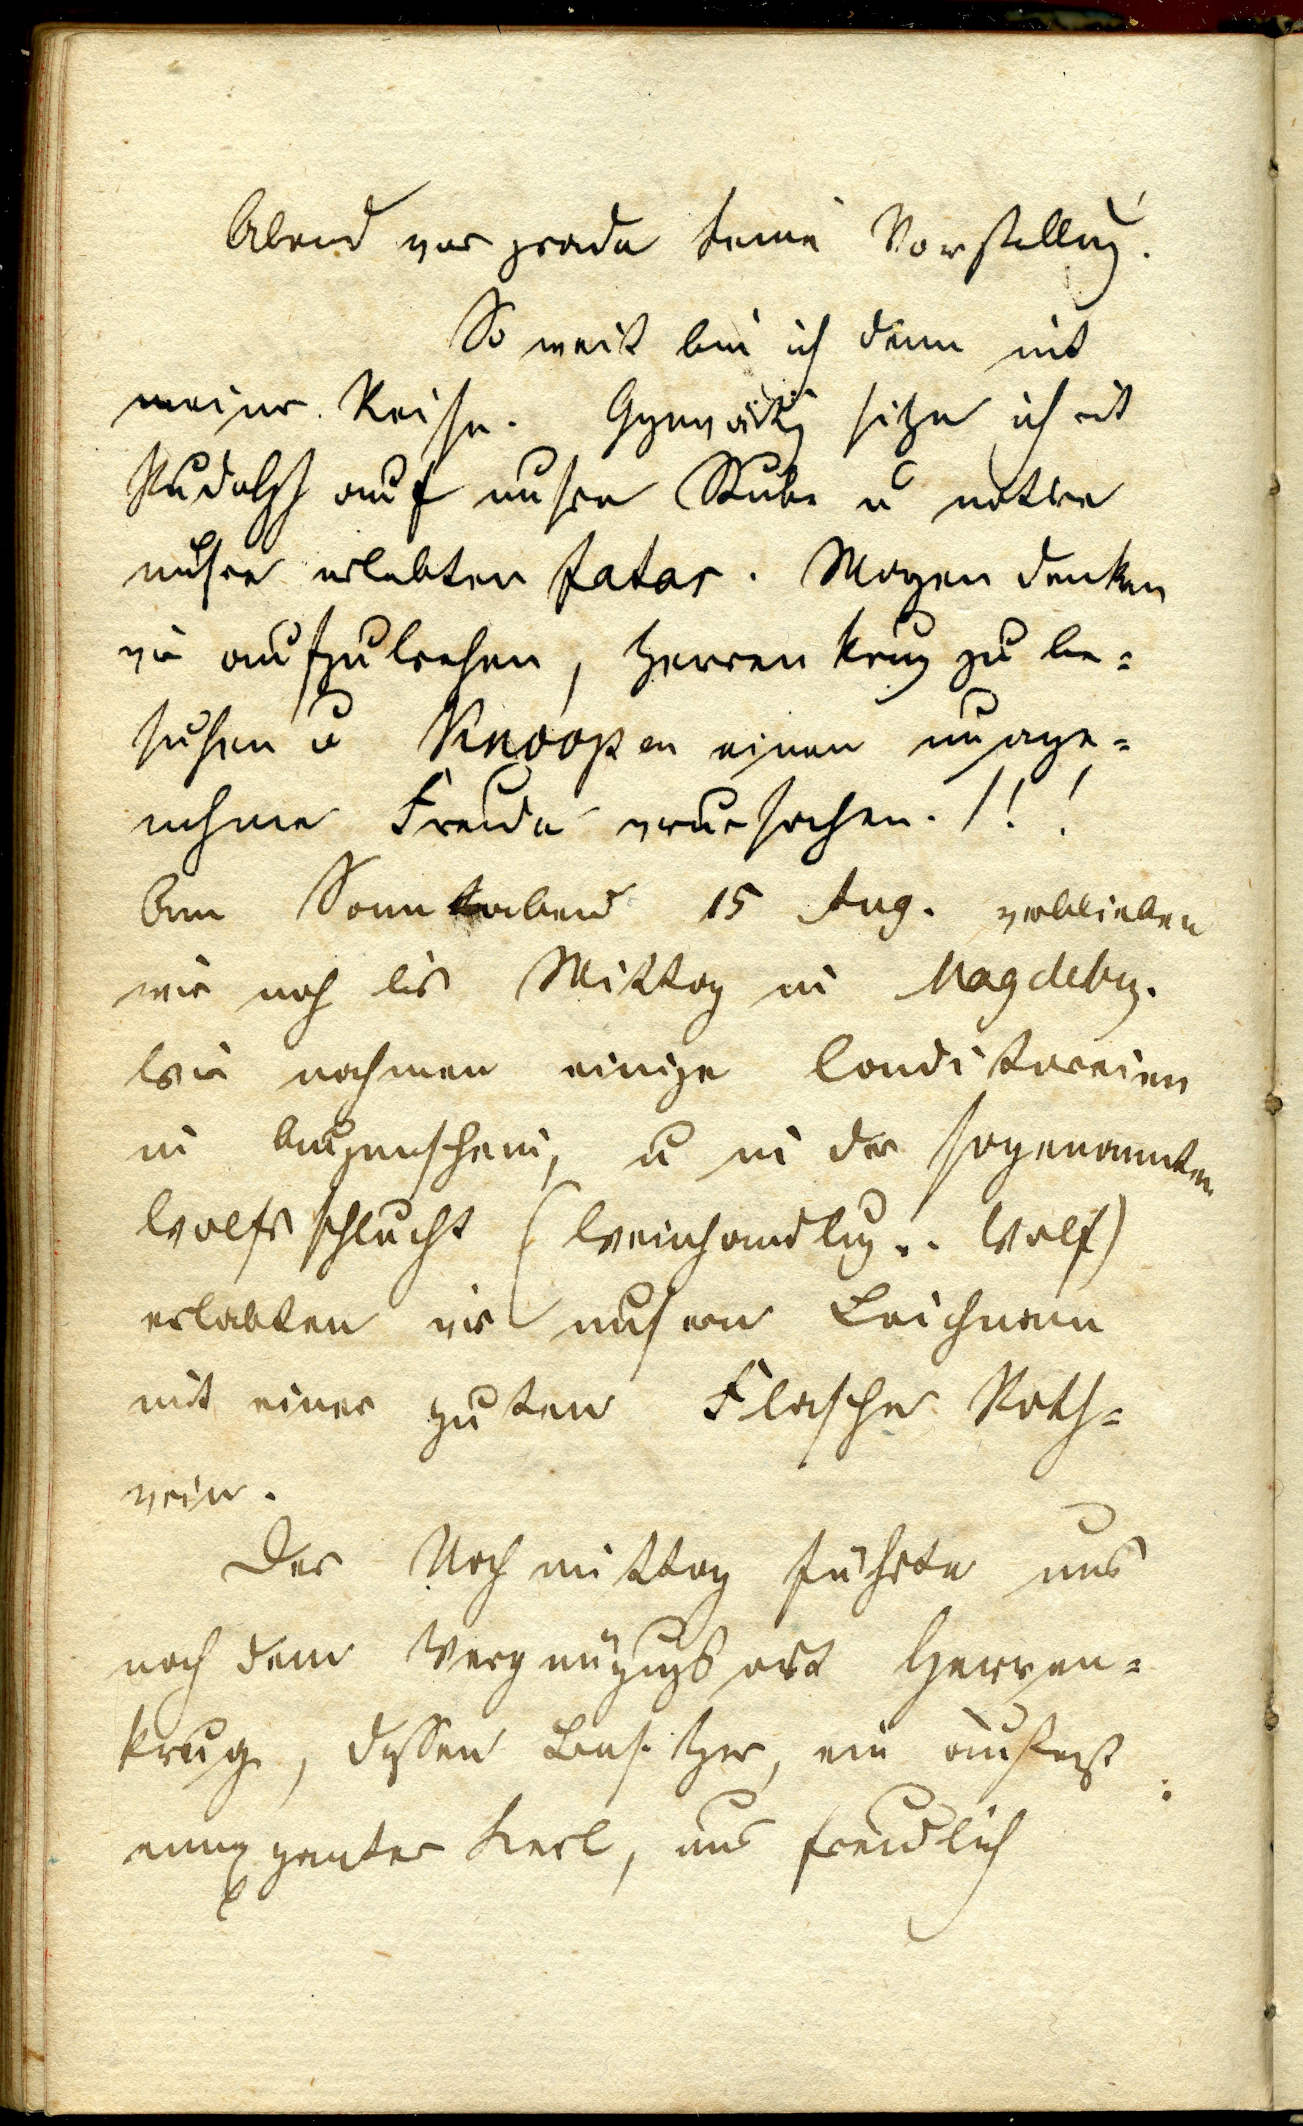 Abend war grade keine Vorstellung.
So weit bin ich denn mit
meiner Reise. Gegenwärtig sitze ich mit
Rudolph auf unsrer Stube u notire
unsre erlebten fatas. Morgen denken
wir aufzubrechen, Herrenkrug zu be=
suchen u Knoopen einen unange=
nehme Freude verursachen. !!!
Am Sonnabend 15 Aug. verblieben
wir noch bis Mittag in Magdebrg.
Wir nahmen einige Conditoreien
in Augenschein, u in der sogenannten
Wolfsschlucht (Weinhandlung.. Wolf)
erlabten wir unsern Leichnam
mit einer guten Flasche Roth=
wein.
Der Nachmittag führte uns
nach dem Vergnügungsort Herren=
krug, dessen Besitzer, ein äußerst
Kerl, uns freundlich